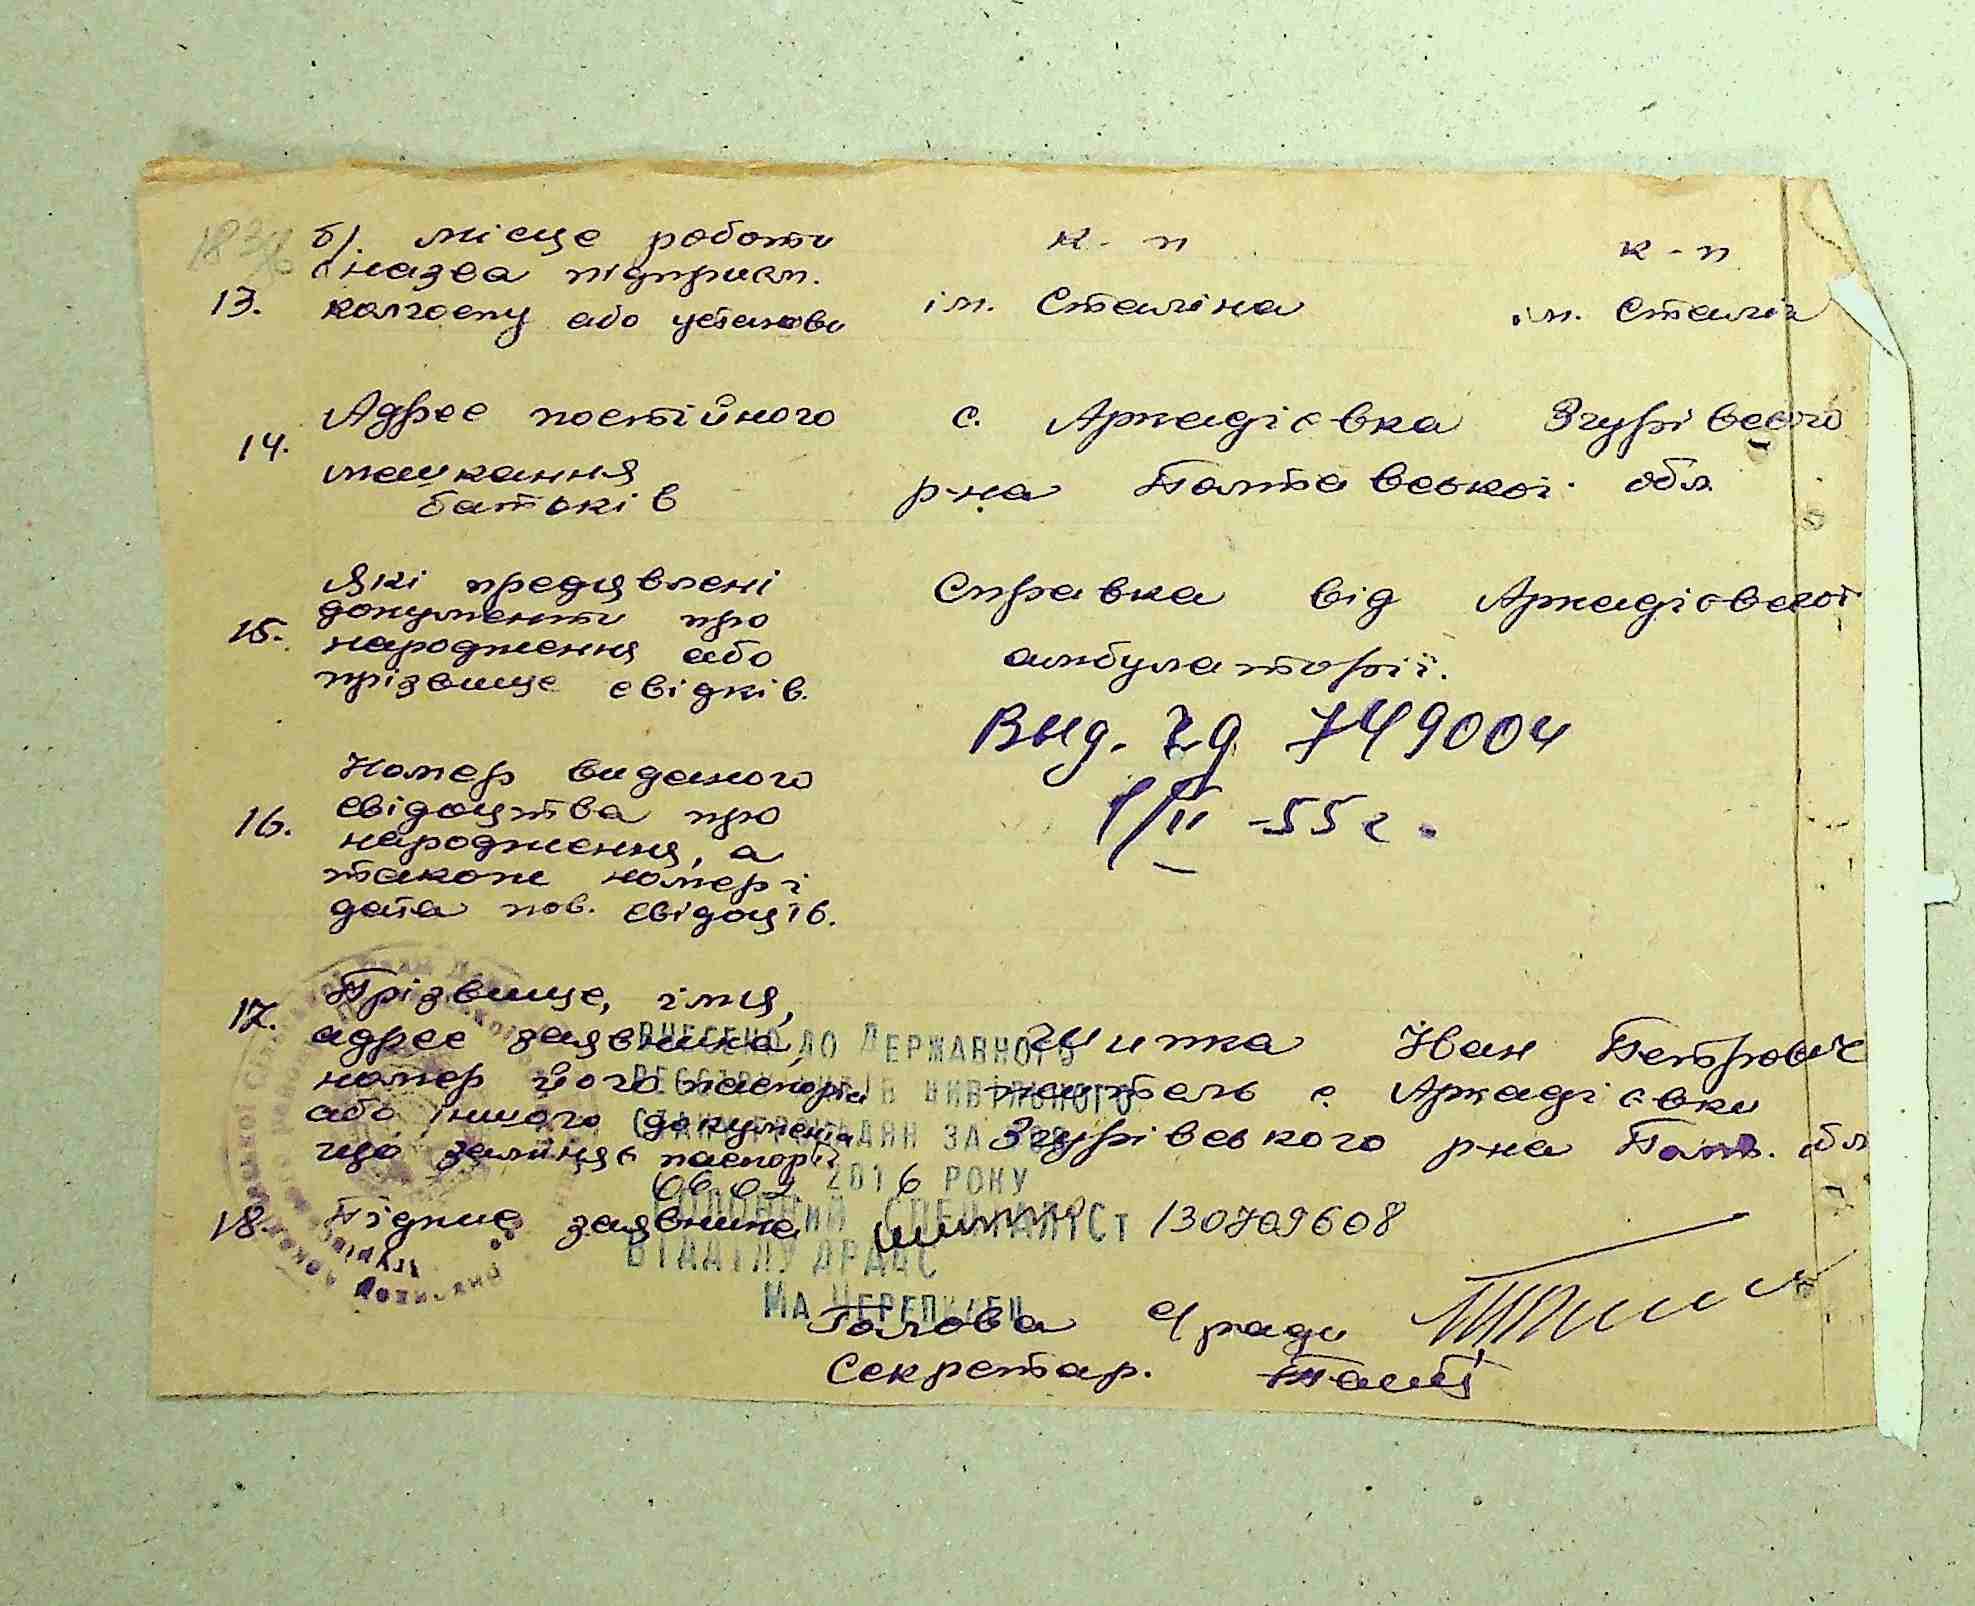 183
б). місце роботи к-п к-п
(назва підприєм.
13. колгоспу або установи ім. Сталіна ім. Сталін
Адрес постійного с. Аркадієвка Згурівсього
14.
мешкання р-на Полтавської обл
батьків
Які предявлені Справка від Аркадієвської
документи про
15. народження або амбулаторії.
прізвище свідків.
Выд. 749004
Номер виданого
16. свідоцтва про 1/II -55 г.
народження, а
також номер і
дата пов. свідоцтв.
17. Прізвище, імя,
адрес заявника, Шипка Іван Петрович
номер його паспорта житель с. Аркадієвки
або іншого документа Згурівського р-на Полт. обл
що заміняє паспорт
18. Підпис заявника 130709608
ВНЕСЕНО ДО ДЕРЖАВНОГО
РЕЄСТРУ АКТІВ ЦИВІЛЬНОГО
СТАНУ ГРОМАДЯН ЗА №
2016 РОКУ
ГОЛОВНИЙ СПЕЦІАЛІСТ
ВІДДІЛУ ДРАЦС
Голова с/ради
Секретар.